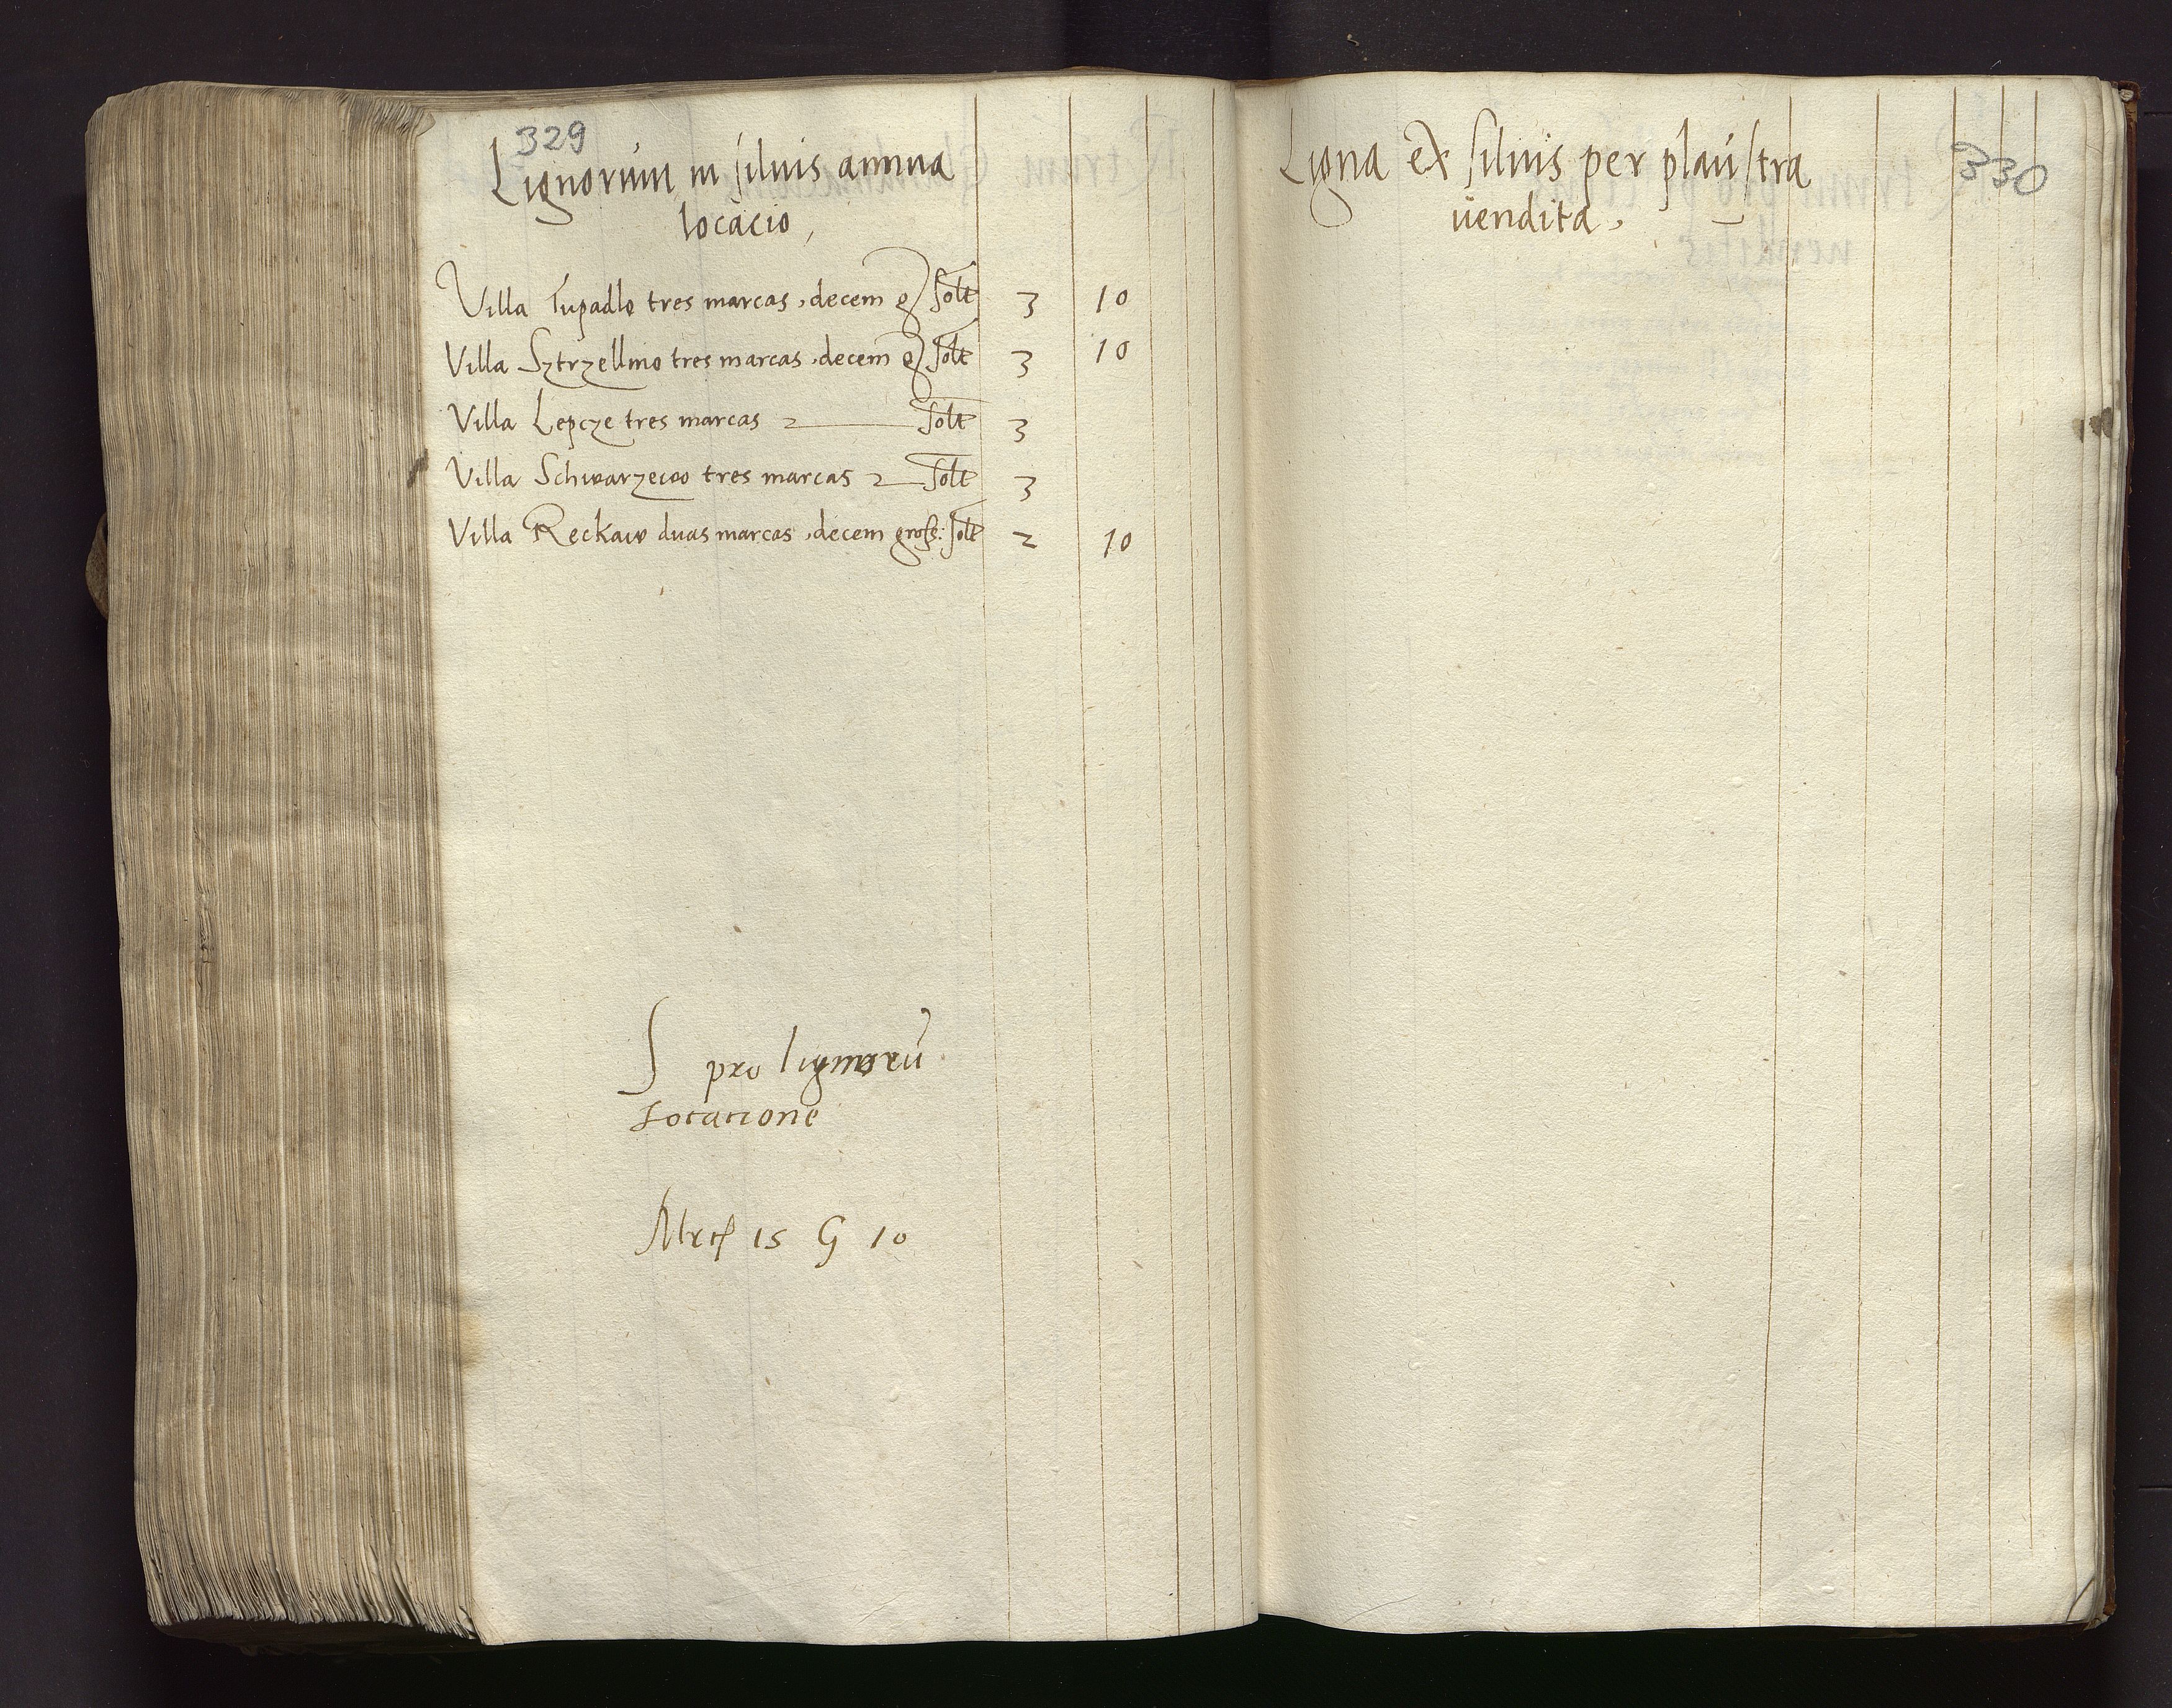 329
Lignorum in silvis annua
locacio,
Villa Tupadlo tres marcas, decem g solt 3 10
Villa Sztrzellino tres marcas, decem g solt 3 10
Villa Lepcze tres marcas solt 3
Villa Schwarzewo tres marcas solt 3
Villa Reckaw duas marcas, decem gross: solt 2 10
S pro lignorū
Locatione
Mrc 15 G 10
330
Ligna ex silvis per plaustra
vendita,